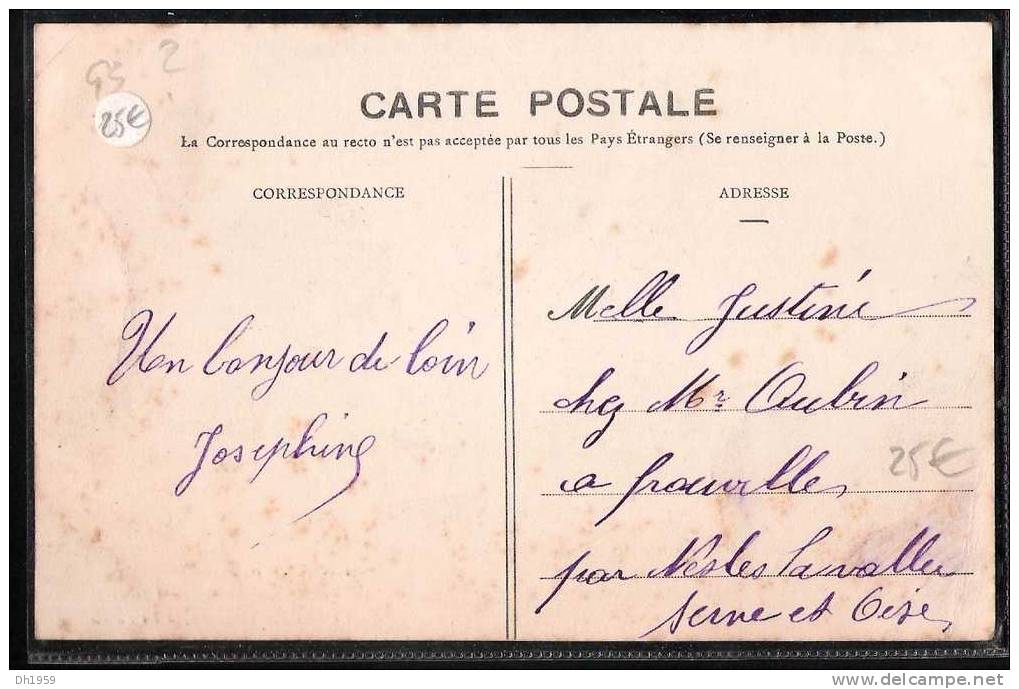 95 2
25€
CARTE POSTALE
La Correspondance au recto n'est pas acceptée par tous les Pays Étrangers (Se renseigner à la Poste.)
CORRESPONDANCE
Un bonjour de loin
Josephine
ADRESSE
Melle Justine
chez Mr Aubin
a frouville
25€
par Nesles la vallee
Seine et Oise
DH1959
www.delcampe.net